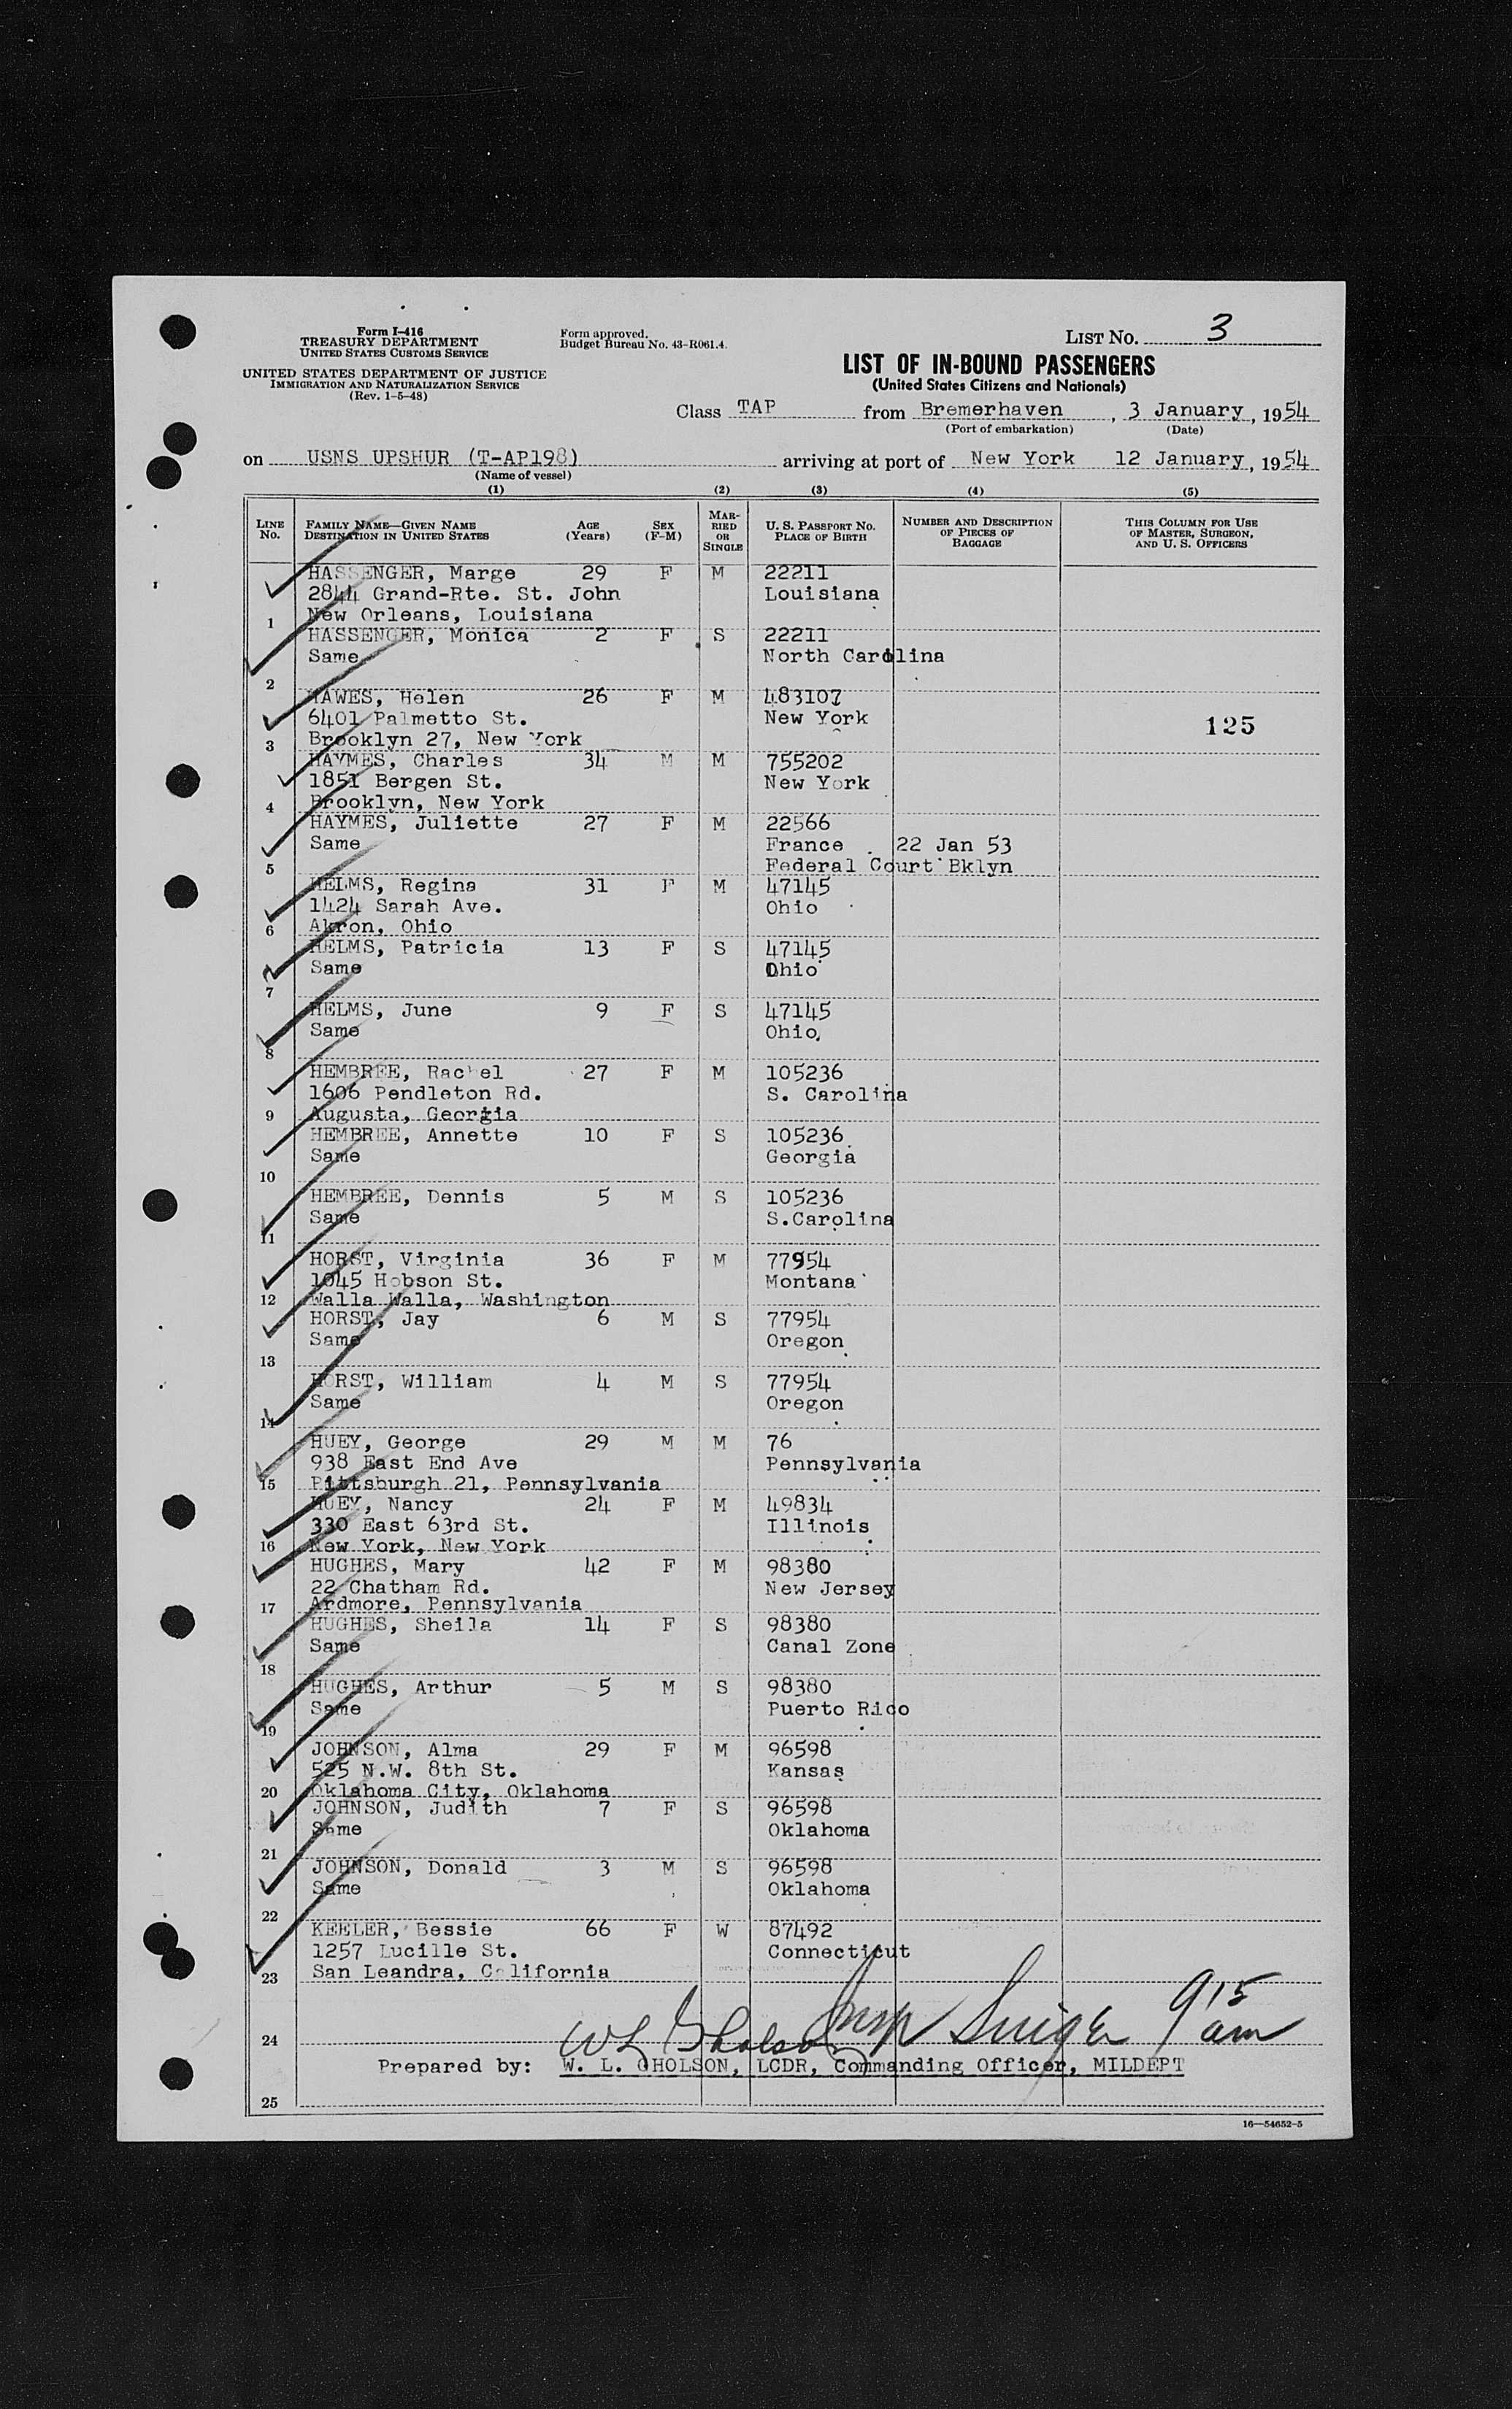 Form I-416
TREASURY DEPARTMENT
UNITED STATES CUSTOMS SERVICE
UNITED STATES DEPARTMENT OF JUSTICE
IMMIGRATION AND NATURALIZATION SERVICE
(Rev. 1-5-48)
Form approved.
Budget Bureau No. 43-R061.4.
LIST No. 3
LIST OF IN-BOUND PASSENGERS
(United States Citizens and Nationals)
Class TAP from Bremerhaven, 3 January, 1954
(Port of embarkation) (Date)
on USNS UPSHUR (T-AP198) arriving at port of New York 12 January, 1954
(Name of vessel)
(1) (2) (3) (4) (5)
LINE No. FAMILY NAME—GIVEN NAME DESTINATION IN UNITED STATES AGE (Years) SEX (F-M) MARRIED OR SINGLE U. S. PASSPORT NO. PLACE OF BIRTH NUMBER AND DESCRIPTION OF PIECES OF BAGGAGE THIS COLUMN FOR USE OF MASTER, SURGEON, AND U. S. OFFICERS
HASSENGER, Marge 29 F M 22211
2844 Grand-Rte. St. John Louisiana
1 New Orleans, Louisiana
HASSENGER, Monica 2 F S 22211
Same North Carolina
2
HAWES, Helen 26 F M 483107
6401 Palmetto St. New York 125
3 Brooklyn 27, New York
HAYMES, Charles 34 M M 755202
1851 Bergen St. New York
4 Brooklyn, New York
HAYMES, Juliette 27 F M 22566
Same France 22 Jan 53
5 Federal Court Bklyn
HELMS, Regina 31 F M 47145
1424 Sarah Ave. Ohio
6 Akron, Ohio
HELMS, Patricia 13 F S 47145
Same Ohio
7
HELMS, June 9 F S 47145
Same Ohio
8
HEMBREE, Rachel 27 F M 105236
1606 Pendleton Rd. S. Carolina
9 Augusta, Georgia
HEMBREE, Annette 10 F S 105236
Same Georgia
10
HEMBREE, Dennis 5 M S 105236
Same S.Carolina
11
HORST, Virginia 36 F M 77954
1045 Hobson St. Montana
12 Walla Walla, Washington
HORST, Jay 6 M S 77954
Same Oregon
13
HORST, William 4 M S 77954
Same Oregon
14
HUEY, George 29 M M 76
938 East End Ave Pennsylvania
15 Pittsburgh 21, Pennsylvania
HUEY, Nancy 24 F M 49834
330 East 63rd St. Illinois
16 New York, New York
HUGHES, Mary 42 F M 98380
22 Chatham Rd. New Jersey
17 Ardmore, Pennsylvania
HUGHES, Sheila 14 F S 98380
Same Canal Zone
18
HUGHES, Arthur 5 M S 98380
Same Puerto Rico
19
JOHNSON, Alma 29 F M 96598
525 N.W. 8th St. Kansas
20 Oklahoma City, Oklahoma
JOHNSON, Judith 7 F S 96598
Same Oklahoma
21
JOHNSON, Donald 3 M S 96598
Same Oklahoma
22
KEELER, Bessie 66 F W 87492
1257 Lucille St. Connecticut
23 San Leandra, California
WL Gholson 9 15 am
24
Prepared by: W. L. GHOLSON, LCDR, Commanding Officer, MILDEPT
25
16—54652-5